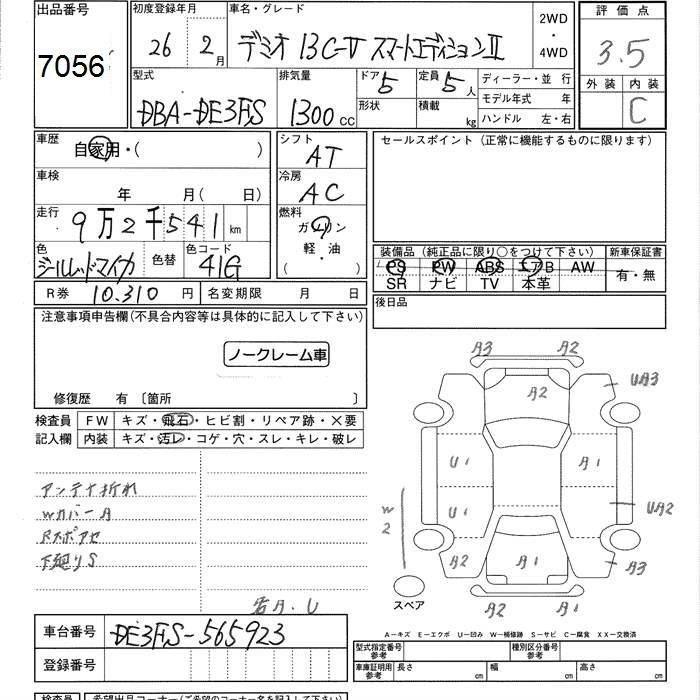 出品番号
7056
初度登録年月
26年 2月
車名・グレード
デミオ 13C-V スマートエディションⅡ
2WD
・
4WD
評価点
3.5
外装 内装
C
型式
DBA-DE3FS
排気量
1300 CC
ドア 5
形状
定員 5人
積載 kg
ディーラー・並行
モデル年式 年
ハンドル 左・右
車歴
自家用・( )
シフト
AT
セールスポイント (正常に機能するものに限ります)
車検
年 月( 日)
冷房
AC
走行
9万2千541 km
燃料
ガソリン
軽・油
( )
色
色替
色コード
41G
装備品 (純正品に限り○をつけて下さい)
PS PW ABS エアB AW
SR ナビ TV 本革
新車保証書
有・無
R券 10,310 円
名変期限 月 日
後日品
注意事項申告欄(不具合内容等は具体的に記入して下さい)
ノークレーム車
修復歴 有 〔箇所 〕
検査員
記入欄
FW キズ・飛石・ヒビ割・リペア跡・×要
内装 キズ・汚レ・コゲ・穴・スレ・キレ・破レ
アンテナ折れ
Wカバー A
下廻りS
A3 A2
A2
UA3
U1 A1
U1
UA2
W2
A2 A1
A3
A2 A2
スペア
車台番号 DE3FS-565923
登録番号
A－キズ E－エクボ U－凹み W－補修跡 S－サビ C－腐食 XX－交換済
型式指定番号
参考
種別区分番号
参考
車庫証明用
参考
長さ cm
幅 cm
高さ cm
検査員
希望出品コーナー(ご希望のコーナー名を記入して下さい)